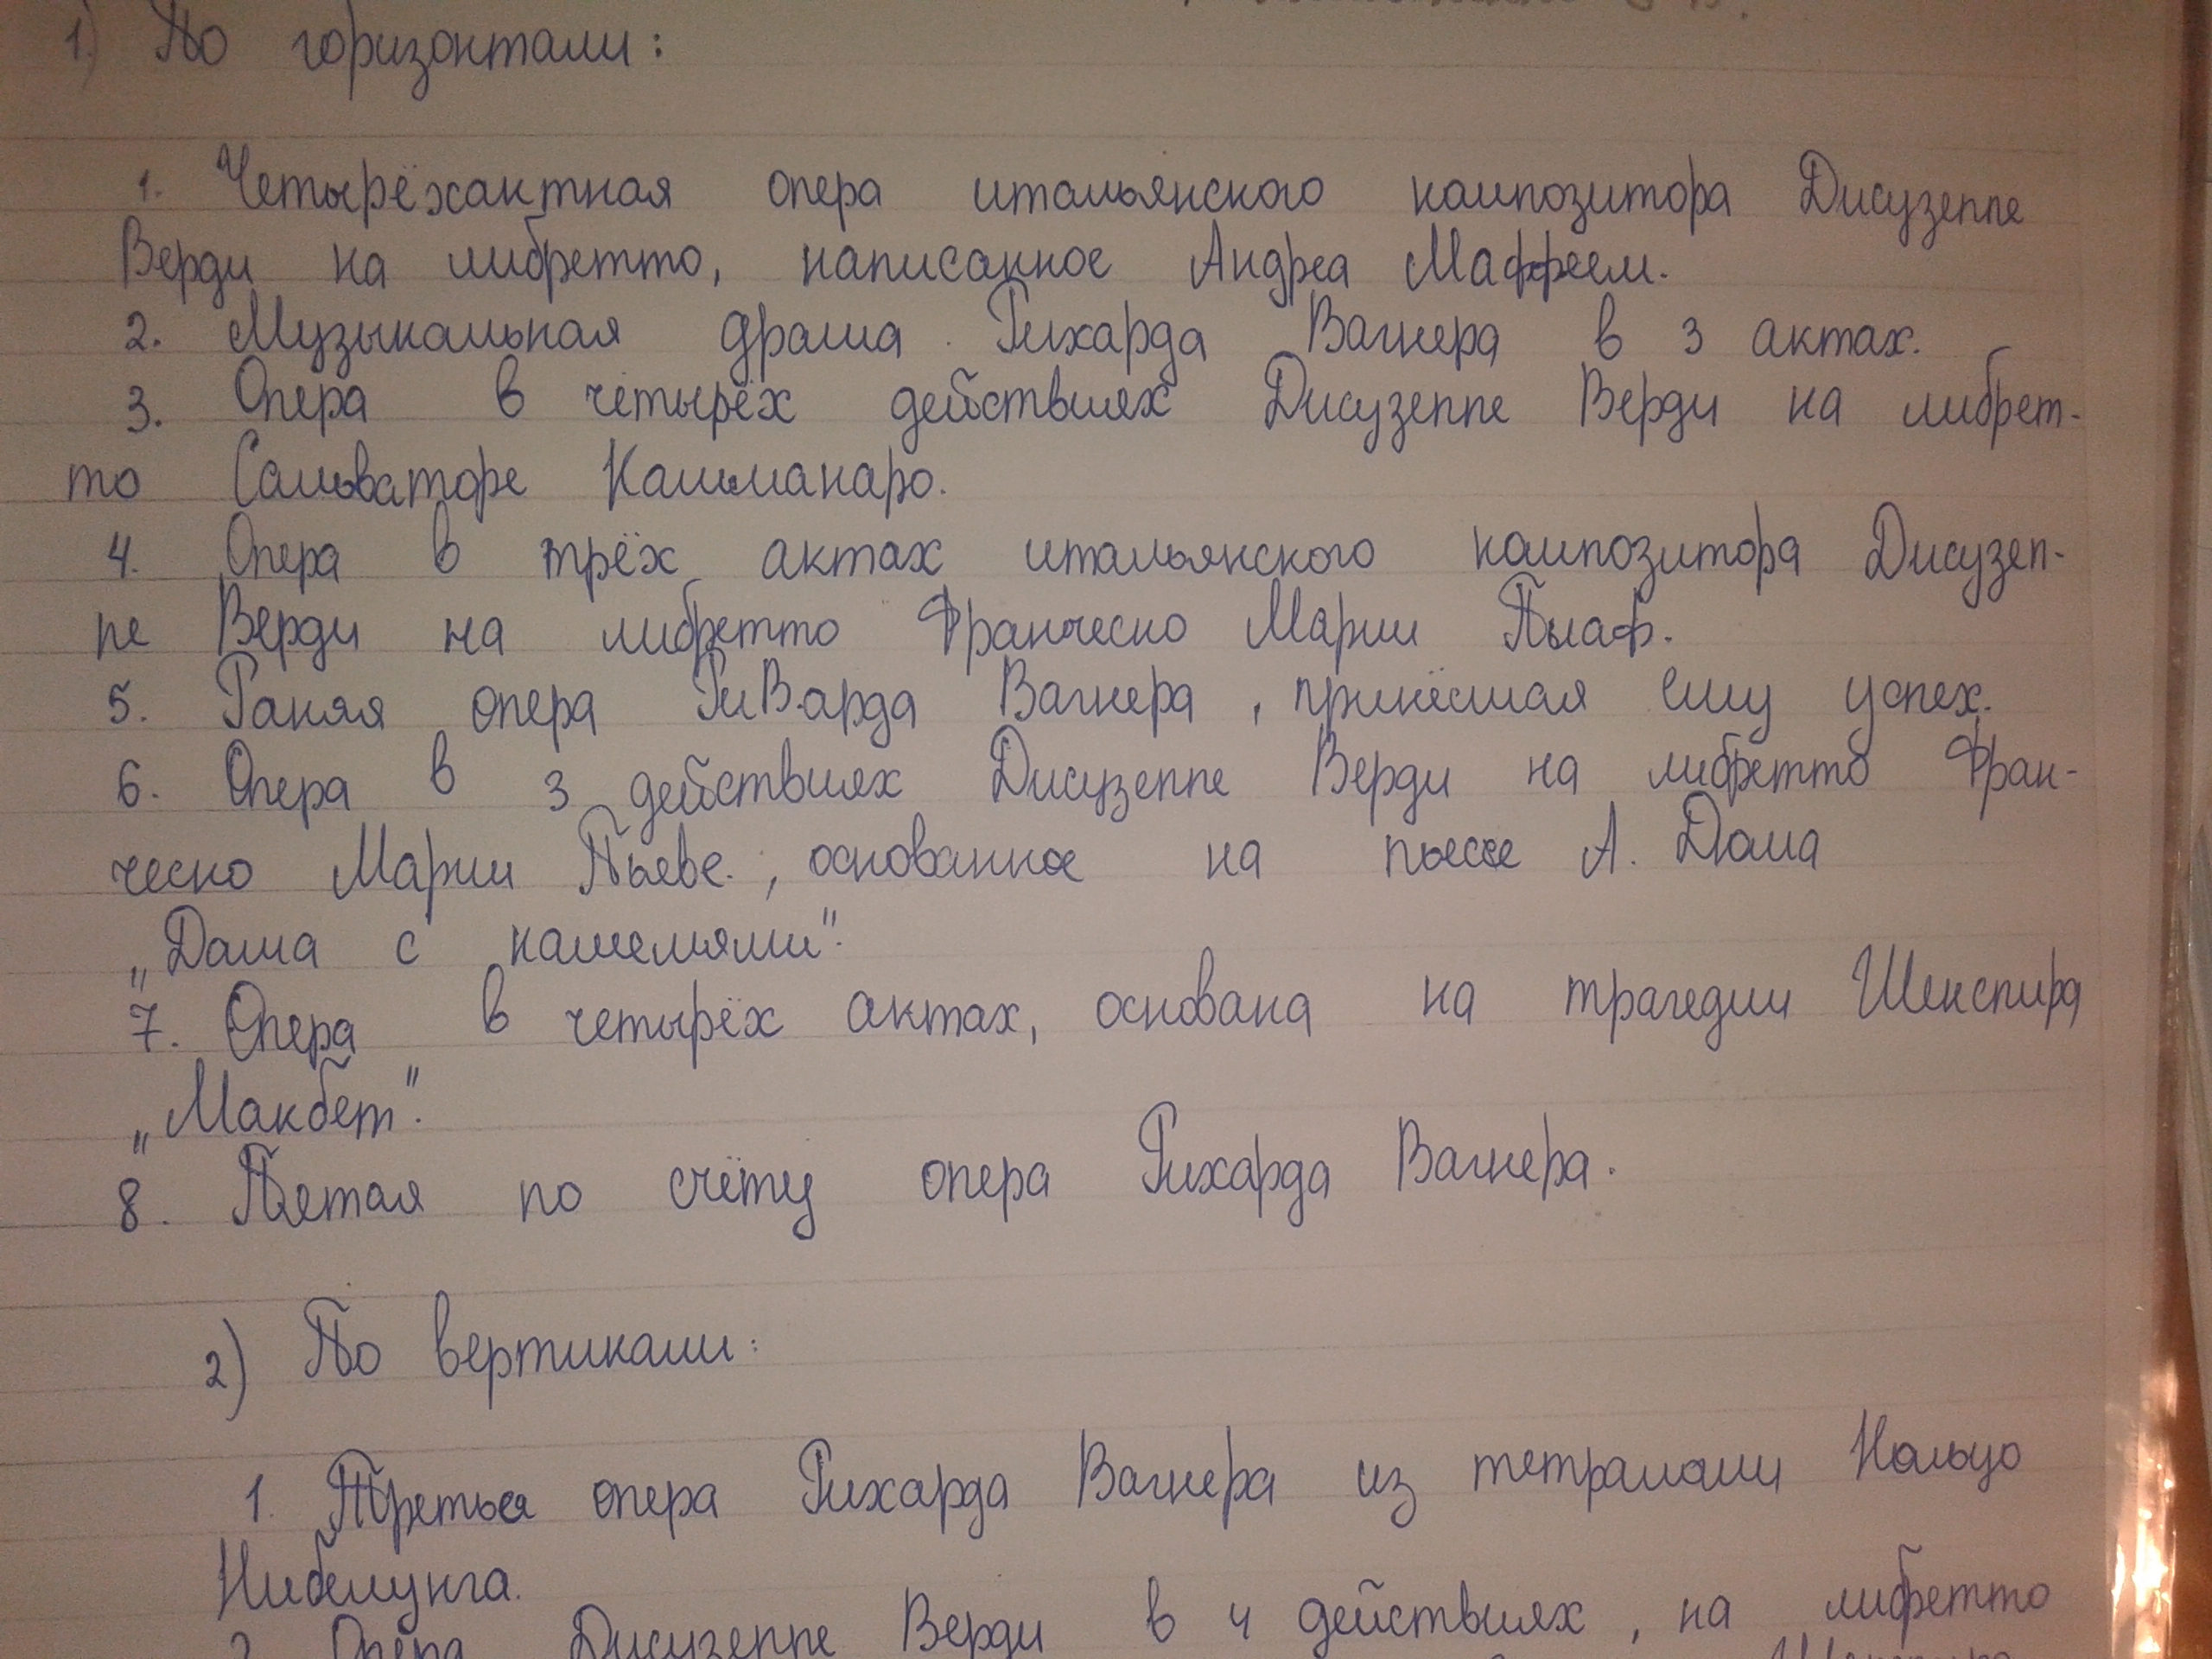 1) По горизонтали:
1. Четырёхактная опера итальянского композитора Джузеппе
Верди на либретто, написанное Андреа Маффеем.
2. Музыкальная драма Рихарда Вагнера в 3 актах.
3. Опера в четырёх действиях Джузеппе Верди на либрет-
то Сальваторе Каммакаро.
4. Опера в трёх актах итальянского композитора Джузеп-
пе Верди на либретто Франческо Марии Пиаф.
5. Раняя опера РиВарда Вагнера, принёсшая ему успех.
6. Опера в 3 действиях Джузеппе Верди на либретто Фран-
ческо Марии Пьеве., основанное на пьесе А. Дюма
„Дама с камелиями".
7. Опера в четырёх актах, основана на трагедии Шекспира
„Макбет".
8. Пятая по счёту опера Рихарда Вагнера.
2) По вертикали:
1. Третья опера Рихарда Вагнера из тетралогии Кольцо
Нибелунга.
2. Опера Джузеппе Верди в 4 действиях, на либретто